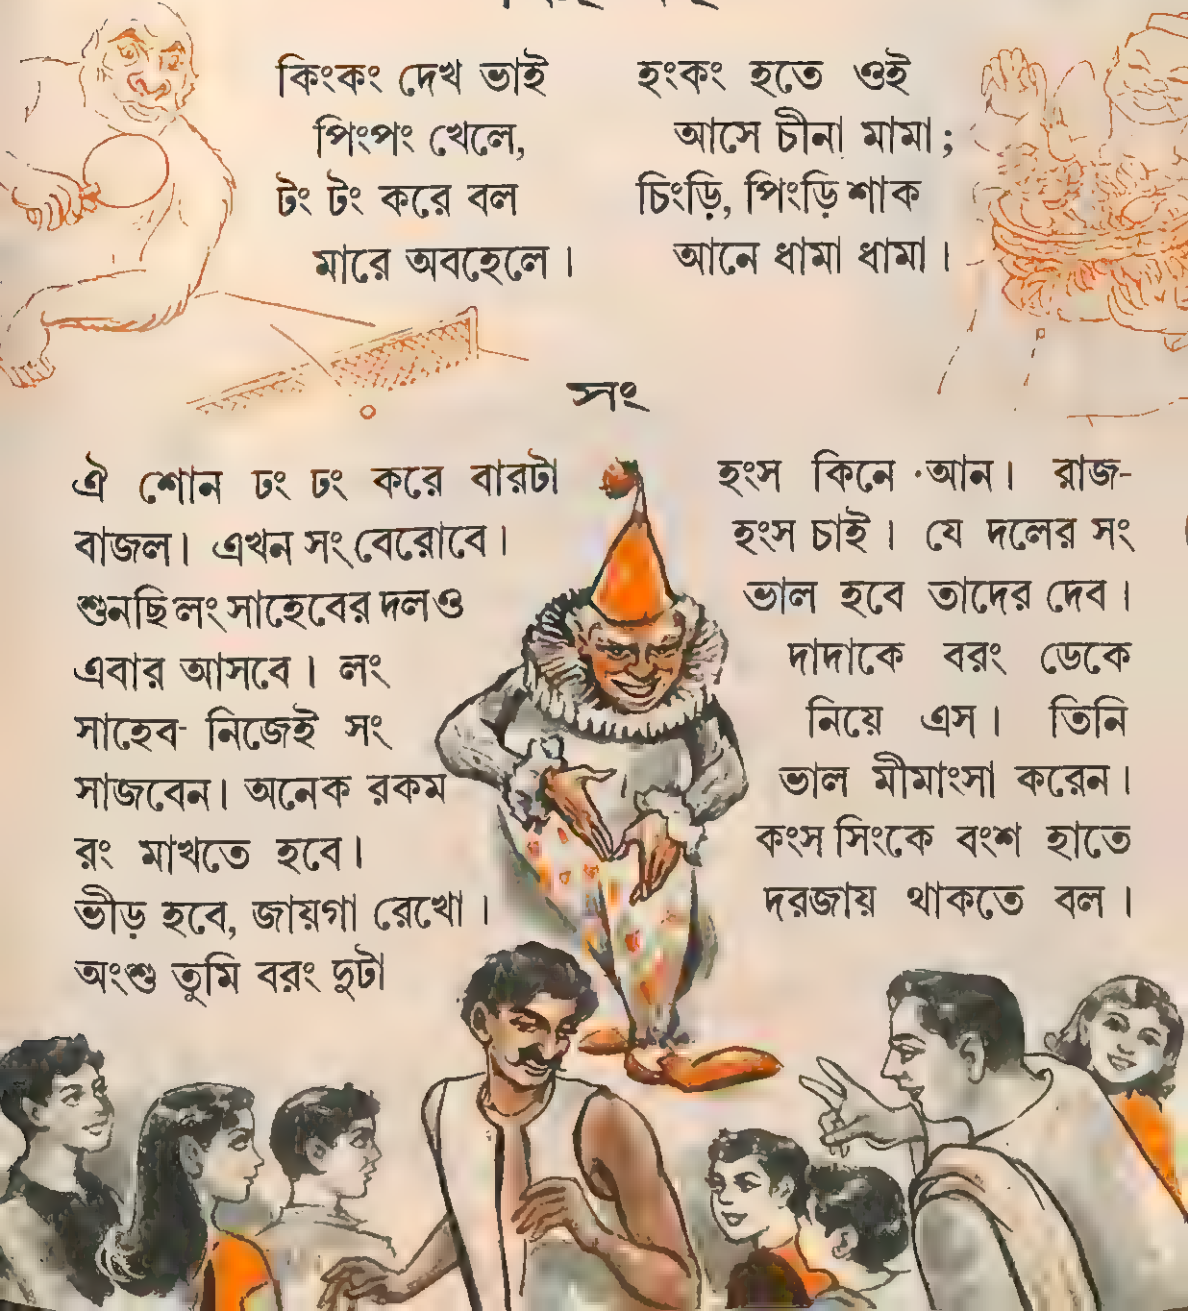 কিংকং দেখ ভাই
পিংপং খেলে,
টং টং করে বল
মারে অবহেলে।
হংকং হতে ওই
আসে চীনা মামা;
চিংড়ি, পিংড়ি শাক
আনে ধামা ধামা।
সং
ঐ শোন ঢং ঢং করে বারটা
বাজল। এখন সং বেরোবে।
শুনছি লং সাহেবের দলও
এবার আসবে। লং
সাহেব নিজেই সং
সাজবেন। অনেক রকম
রং মাখতে হবে।
ভীড় হবে, জায়গা রেখো।
অংশু তুমি বরং দুটা
হংস কিনে আন। রাজ-
হংস চাই। যে দলের সং
ভাল হবে তাদের দেব।
দাদাকে বরং ডেকে
নিয়ে এস। তিনি
ভাল মীমাংসা করেন।
কংস সিংকে বংশ হাতে
দরজায় থাকতে বল।